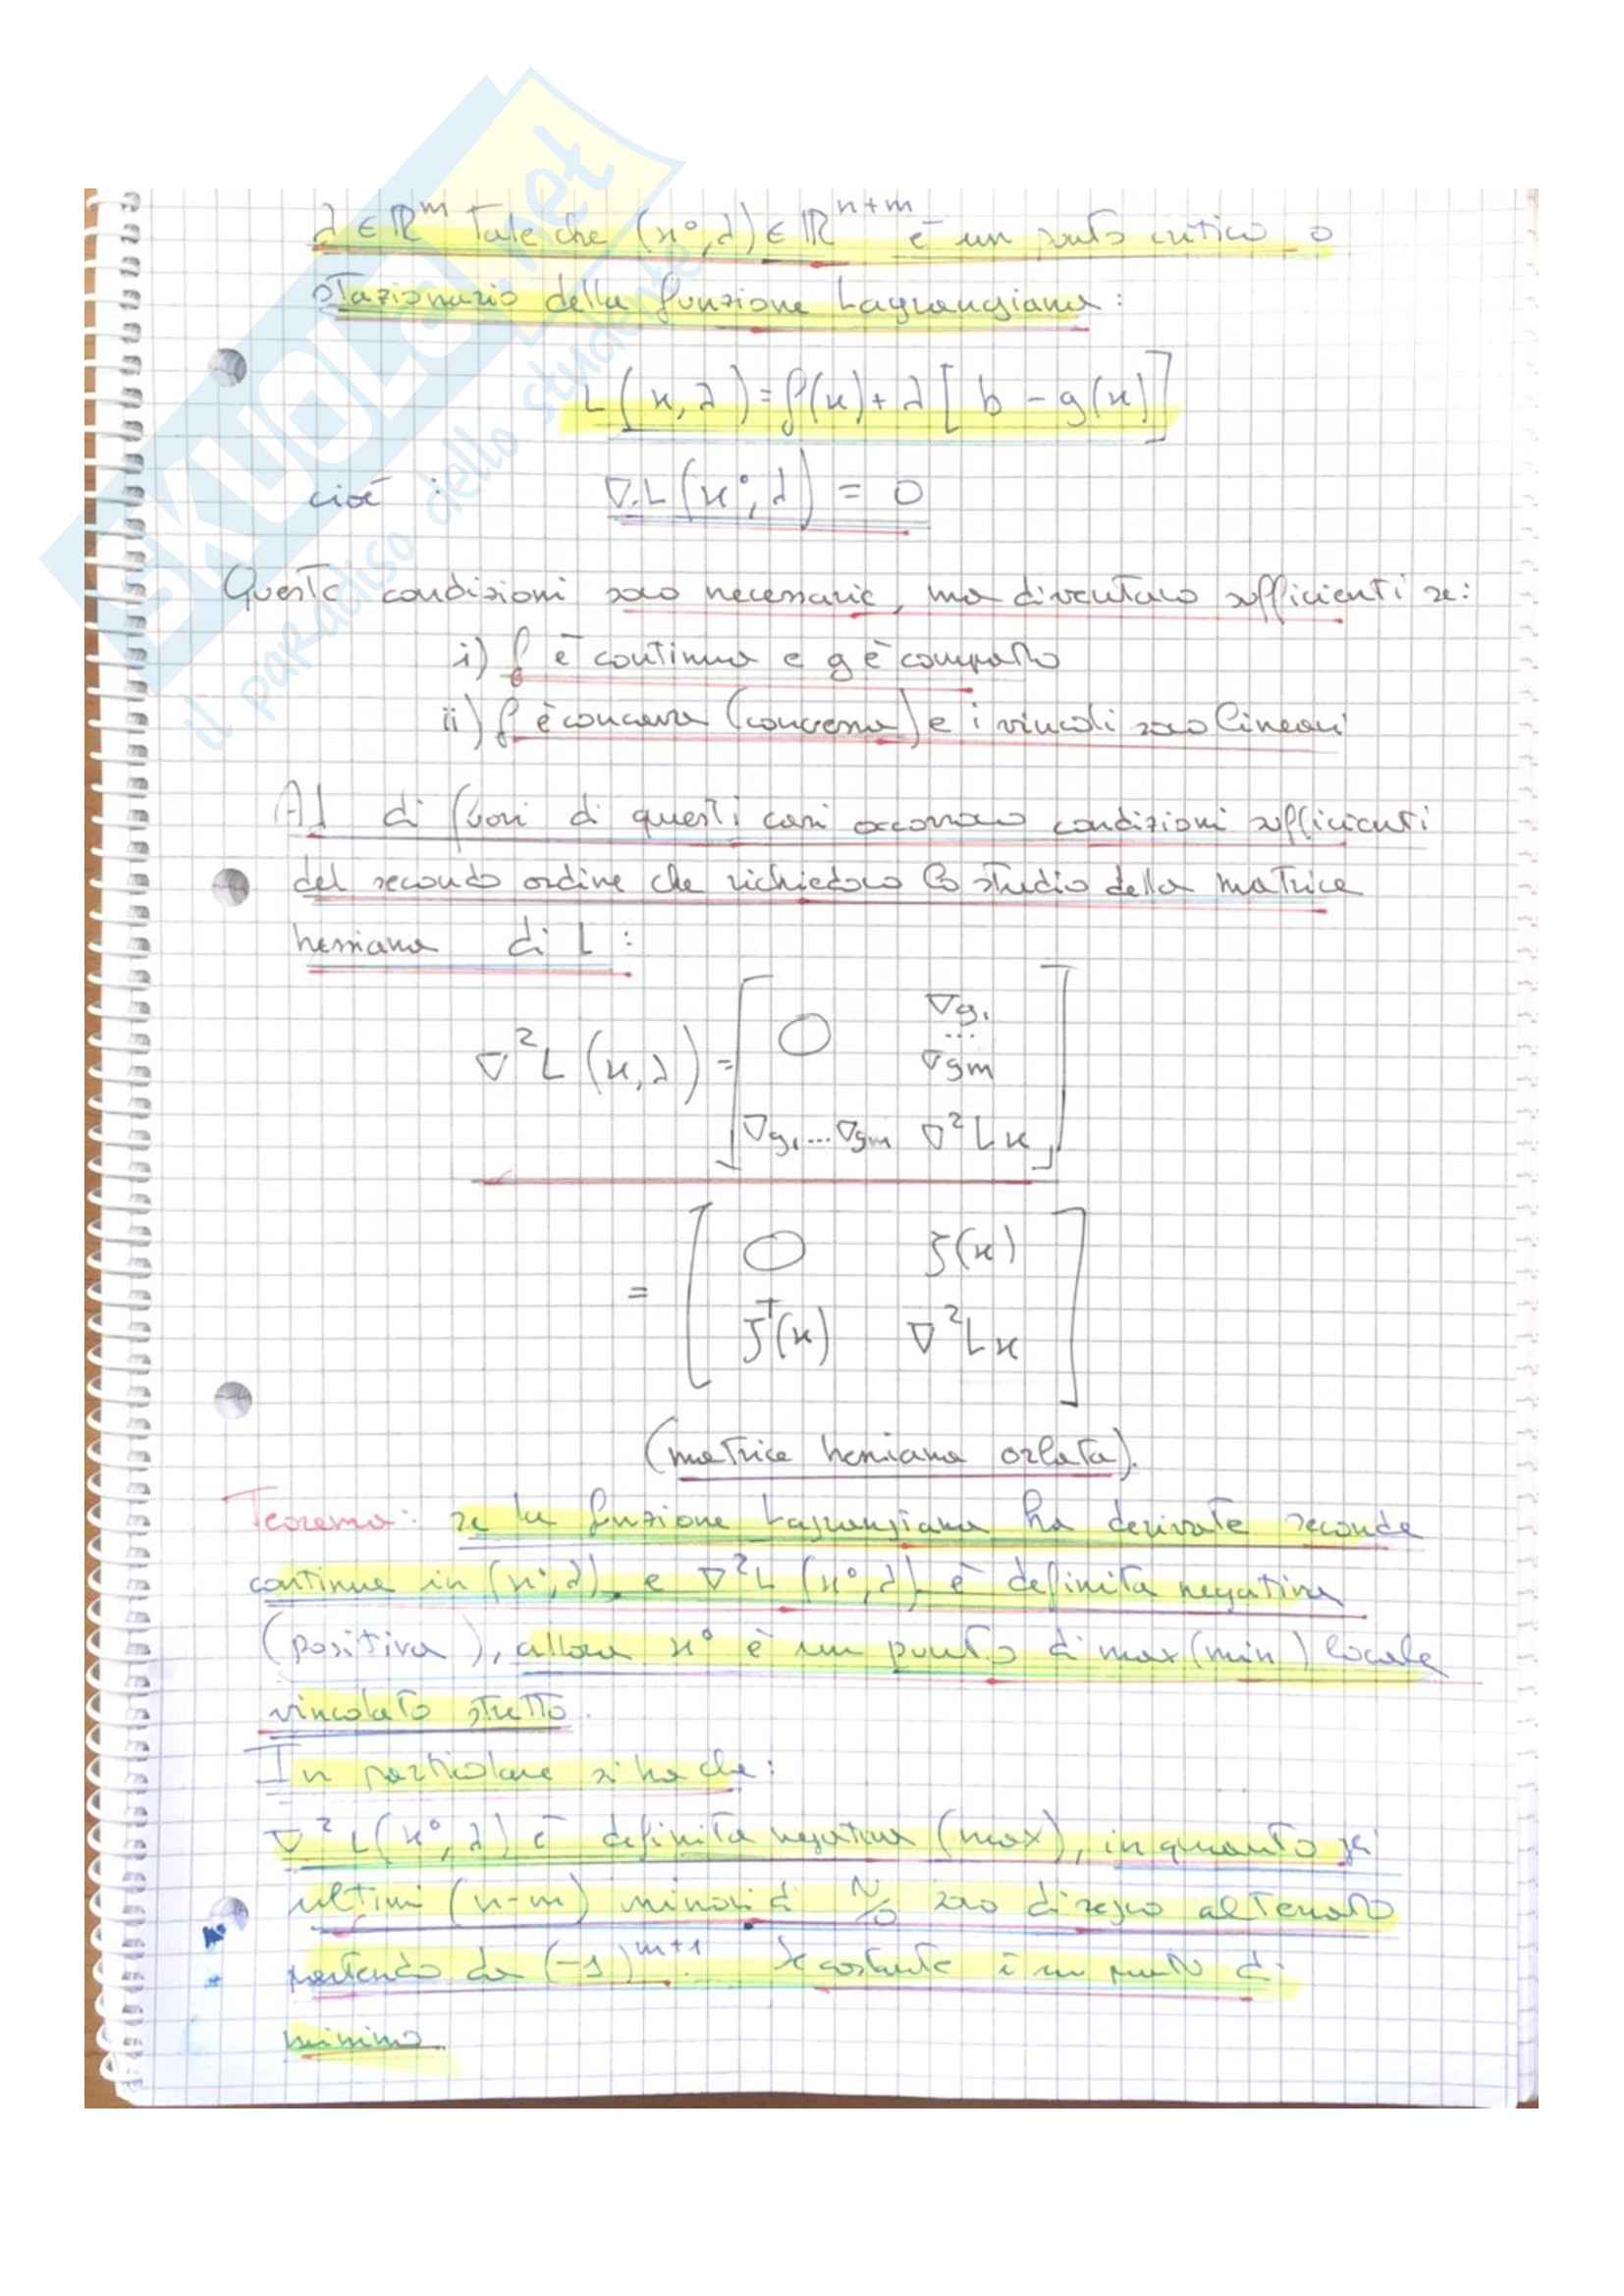 λ ∈ ℝ^m tale che (x°, λ) ∈ ℝ^(n+m) è un punto critico o
stazionario della funzione Lagrangiana:
L(x, λ) = f(x) + λ [b - g(x)]
cioè : ∇L(x°, λ) = 0
Queste condizioni sono necessarie, ma diventano sufficienti se:
i) f è continua e g è compatto
ii) f è concava (convessa) e i vincoli sono lineari
Al di fuori di questi casi occorrono condizioni sufficienti
del secondo ordine che richiedono lo studio della matrice
hessiana di L :
∇²L(x, λ) = [ 0 ∇g₁ ... ∇gm
∇g₁ ... ∇gm ∇²Lx ]
= [ 0 J(x)
J^T(x) ∇²Lx ]
(matrice hessiana orlata).
Teorema: se la funzione Lagrangiana ha derivate seconde
continue in (x°, λ) e ∇²L (x°, λ) è definita negativa
(positiva), allora x° è un punto di max (min) locale
vincolato stretto.
In particolare si ha che:
∇²L(x°, λ) è definita negativa (max), in quanto gli
ultimi (n-m) minori di N/O sono di segno alternato
partendo da (-1)^(m+1). Se costante è un punto di
minimo.
SKUOLA.net
il paradiso dello studente